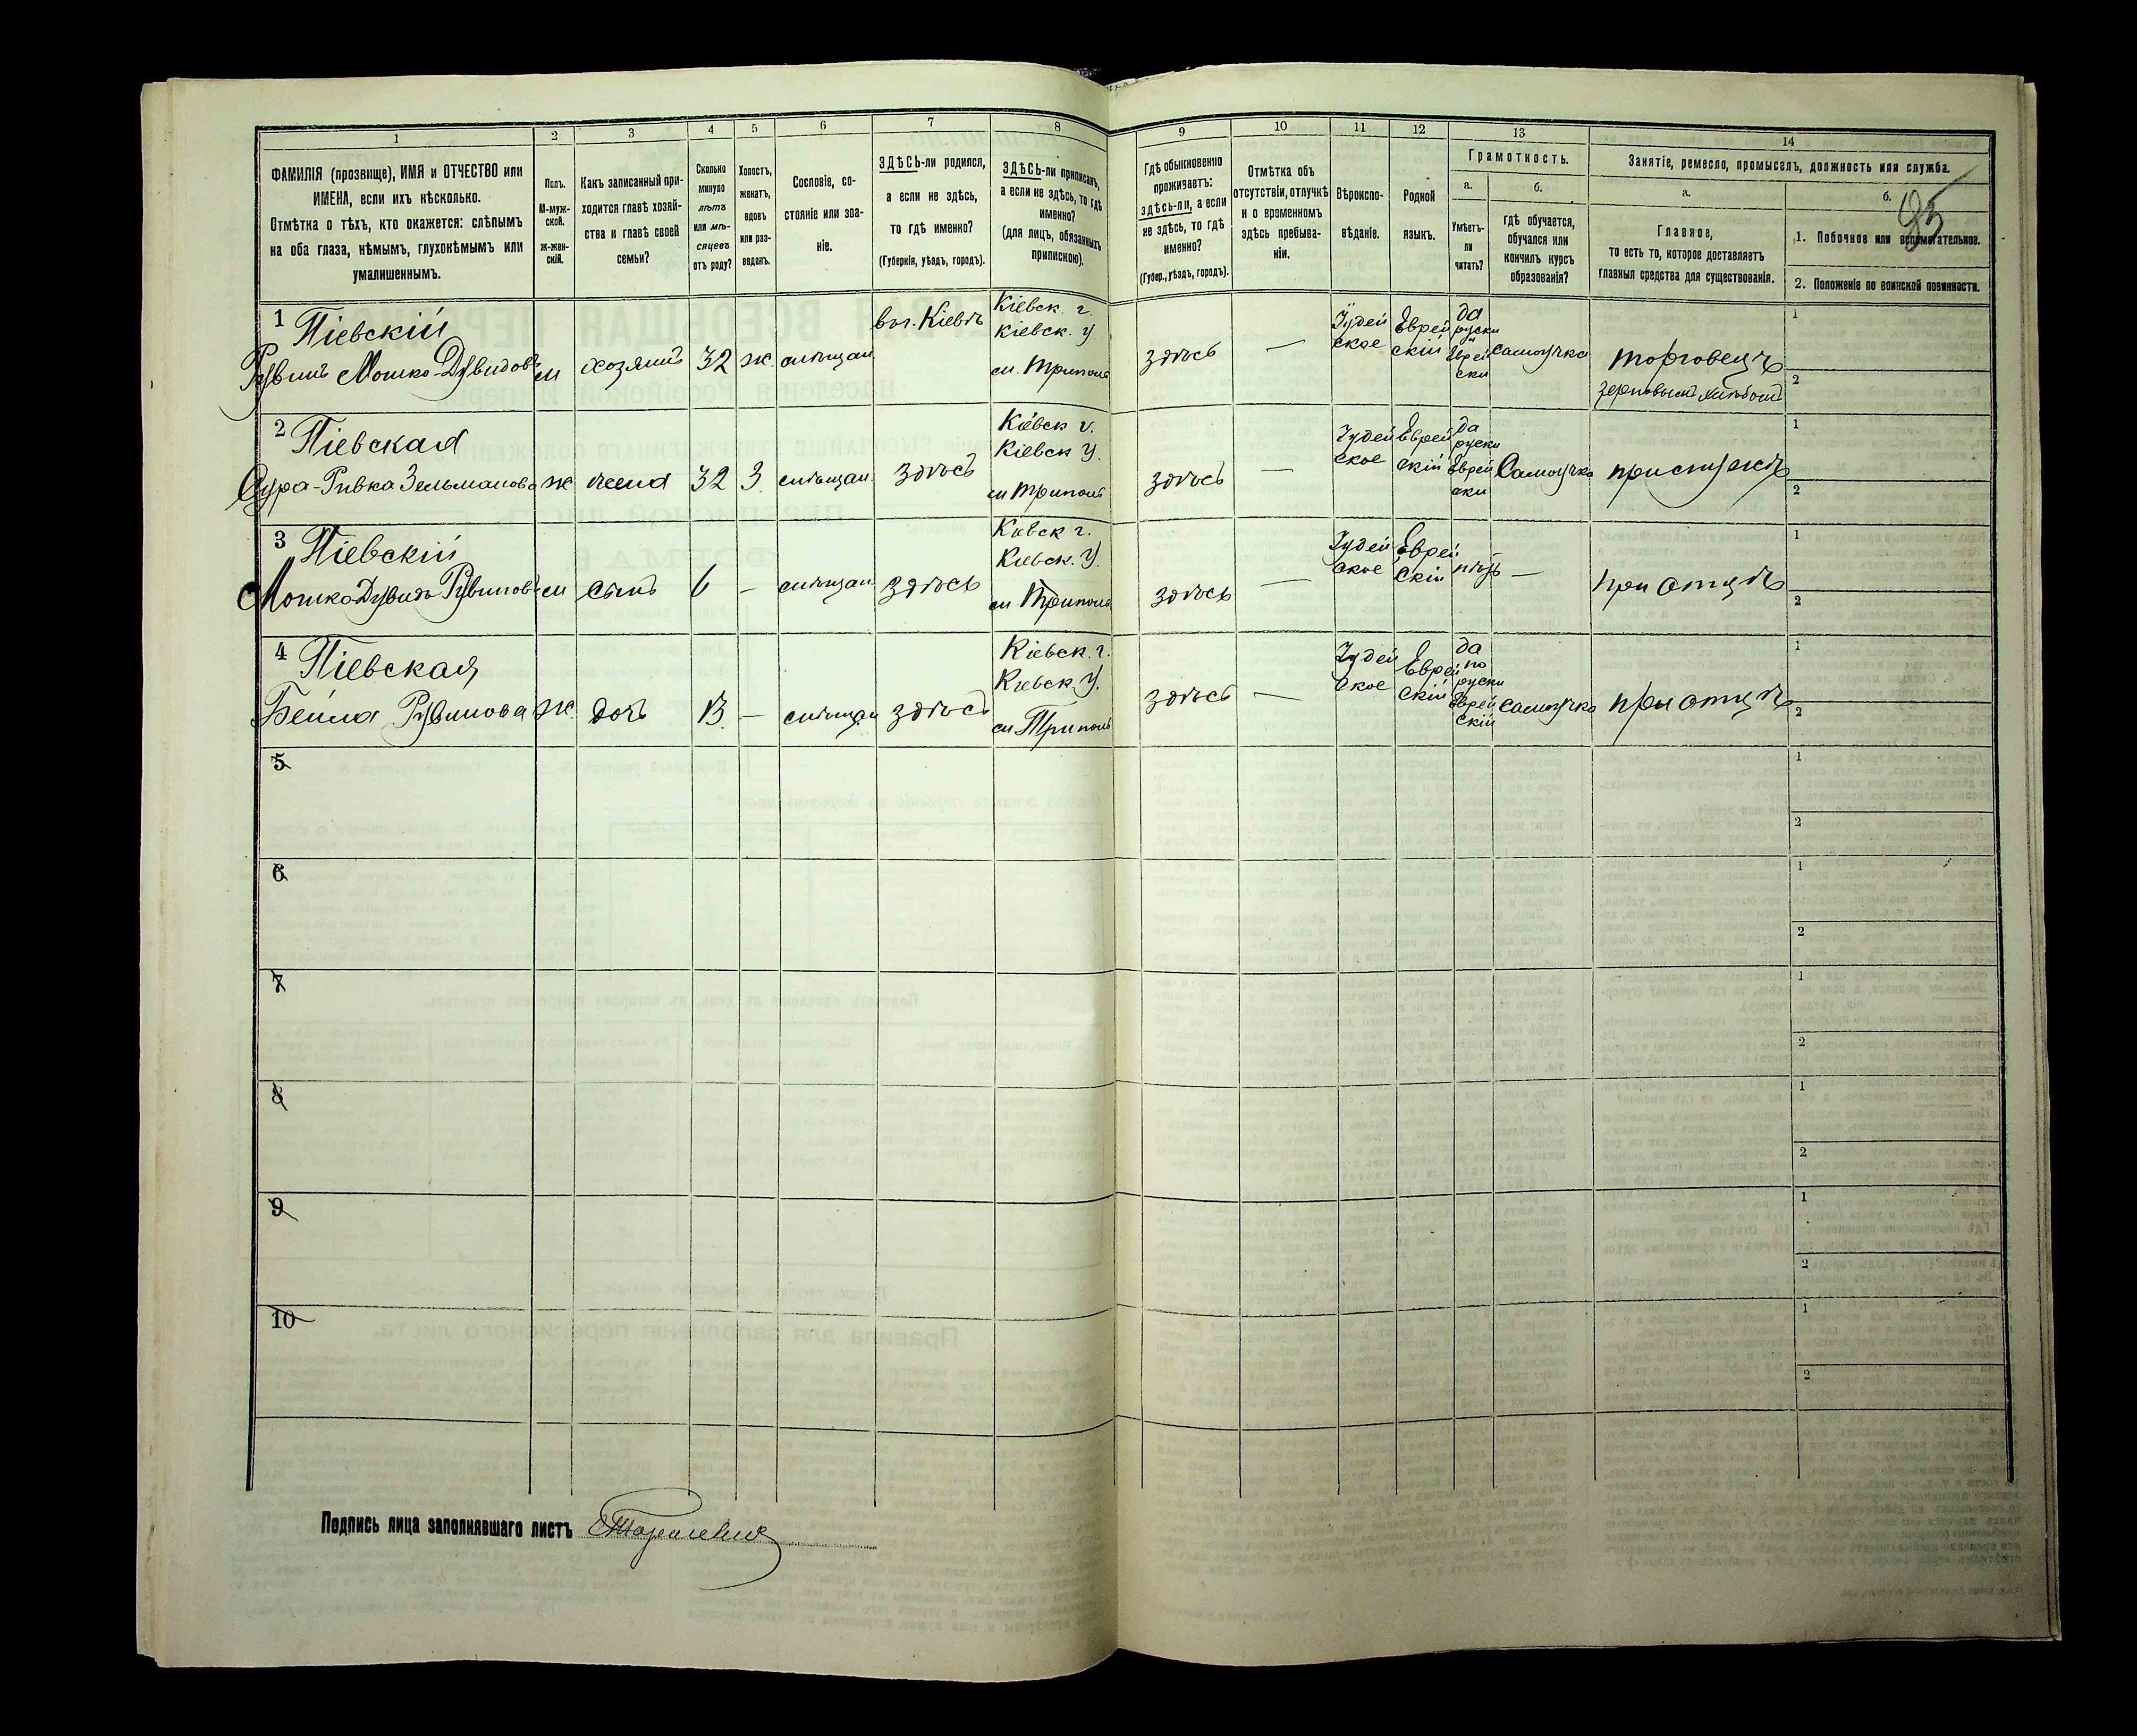 1 2 3 4 5 6 7 8 9 10 11 12 13 14
ФАМИЛІЯ (прозвище), ИМЯ и ОТЧЕСТВО или
ИМЕНА, если ихъ нѣсколько.
Отмѣтка о тѣхъ, кто окажется: слѣпымъ
на оба глаза, нѣмымъ, глухонѣмымъ или
умалишеннымъ.
Полъ.
М-муж-
ской.
Ж-жен-
скій.
Какъ записанный при-
ходится главѣ хозяй-
ства и главѣ своей
семьи?
Сколько
минуло
лѣтъ
или мѣ-
сяцевъ
отъ роду?
Холостъ,
женатъ,
вдовъ
или раз-
веденъ.
Сословіе, со-
стояніе или зва-
ніе.
ЗДѢСЬ-ли родился,
а если не здѣсь,
то гдѣ именно?
(Губернія, уѣздъ, городъ).
ЗДѢСЬ-ли приписанъ,
а если не здѣсь, то гдѣ
именно?
(для лицъ, обязанныхъ
припискою).
Гдѣ обыкновенно
проживаетъ:
здѣсь-ли, а если
не здѣсь, то гдѣ
именно?
(Губер., уѣздъ, городъ).
Отмѣтка объ
отсутствіи, отлучкѣ
и о временномъ
здѣсь пребыва-
ніи.
Вѣроиспо-
вѣданіе.
Родной
языкъ.
Грамотность.
а.
Умѣетъ-
ли
читать?
б.
Гдѣ обучается,
обучался или
кончилъ курсъ
образованія?
Занятіе, ремесло, промыселъ, должность или служба.
а.
Главное,
то есть то, которое доставляетъ
главныя средства для существованія.
б.
95
1. Побочное или вспомогательное.
2. Положеніе по воинской повинности.
1 Піевскій
Рувинъ Мошко-Дувидовъ м хозяинъ 32 ж. мѣщан. в г. Кіевѣ
Кіевск. г.
Кіевск. у.
м. Триполь
здѣсь —
Іудей
ское
Еврей
скій
да
руски
и
Еврей
ски
самоучка
торговецъ
зерновымъ хлѣбомъ
1
2
2 Піевская
Сура-Ривка Зельманова ж жена 32 З. мѣщан. здѣсь
Кіевск г.
Кіевск У.
м Триполь
здѣсь —
Іудей
ское
Еврей
скій
да
руски
Еврей
ски
Самоучка
при мужѣ
1
2
3 Піевскій
Мошко-Дувидъ Рувиновъ м сынъ 6 — мѣщан. здѣсь
Кіевск г.
Кіевск. У.
м Триполь
здѣсь —
Іудей
ское
Еврей
скій
нѣтъ —
при отцѣ
1
2
4 Піевская
Бейла Рувинова ж. дочь 13 — мѣщан здѣсь
Кіевск. г.
Кіевск У.
м Триполь
здѣсь —
Іудей
ское
Еврей
скій
да
по
руски
Еврей
скій
самоучка
при отцѣ
1
2
5
1
2
6
1
2
7
1
2
8
1
2
9
1
2
10
1
2
Подпись лица заполнявшаго листъ